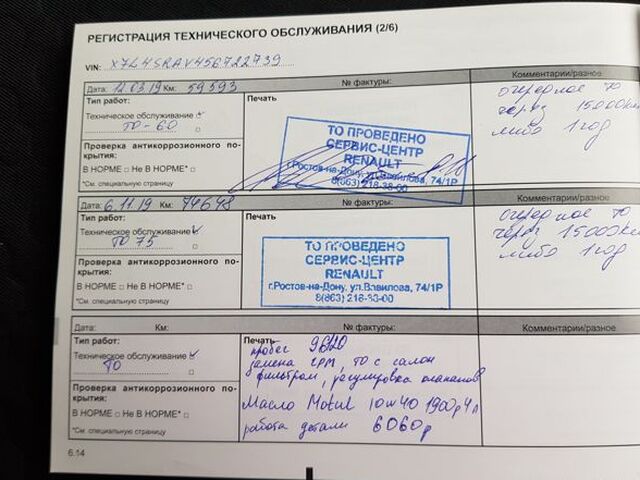 РЕГИСТРАЦИЯ ТЕХНИЧЕСКОГО ОБСЛУЖИВАНИЯ (2/6)
VIN: X7L4SRAV456722739
Дата: 12.03.19 Км: 59593 № фактуры: Комментарии/разное
Тип работ: Печать
Техническое обслуживание
ТО-60
Проверка антикоррозионного по-
крытия:
В НОРМЕ □ Не В НОРМЕ* □
*См. специальную страницу
ТО ПРОВЕДЕНО
СЕРВИС-ЦЕНТР
RENAULT
г.Ростов-на-Дону, ул.Вавилова, 74/1Р
8(863) 218-38-00
очередное ТО
через 15000км
либо 1 год
Дата: 6.11.19 Км: 74648 № фактуры: Комментарии/разное
Тип работ: Печать
Техническое обслуживание
ТО 75
Проверка антикоррозионного по-
крытия:
В НОРМЕ □ Не В НОРМЕ* □
*См. специальную страницу
ТО ПРОВЕДЕНО
СЕРВИС-ЦЕНТР
RENAULT
г.Ростов-на-Дону, ул.Вавилова, 74/1Р
8(863) 218-38-00
очередное ТО
через 15000км
либо 1 год
Дата: Км: № фактуры: Комментарии/разное
Тип работ: Печать
Техническое обслуживание
ТО
Проверка антикоррозионного по-
крытия:
В НОРМЕ □ Не В НОРМЕ* □
*См. специальную страницу
пробег
замена ГРМ, ТО с салон
фильтром, регулировка клапанов
Масло Motul 10w40 1900р 4л
работа детали 6060р
6.14